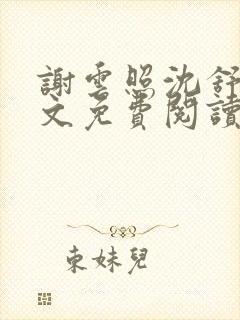 謝雲照沈舒
文免費閱讀
束妹兒